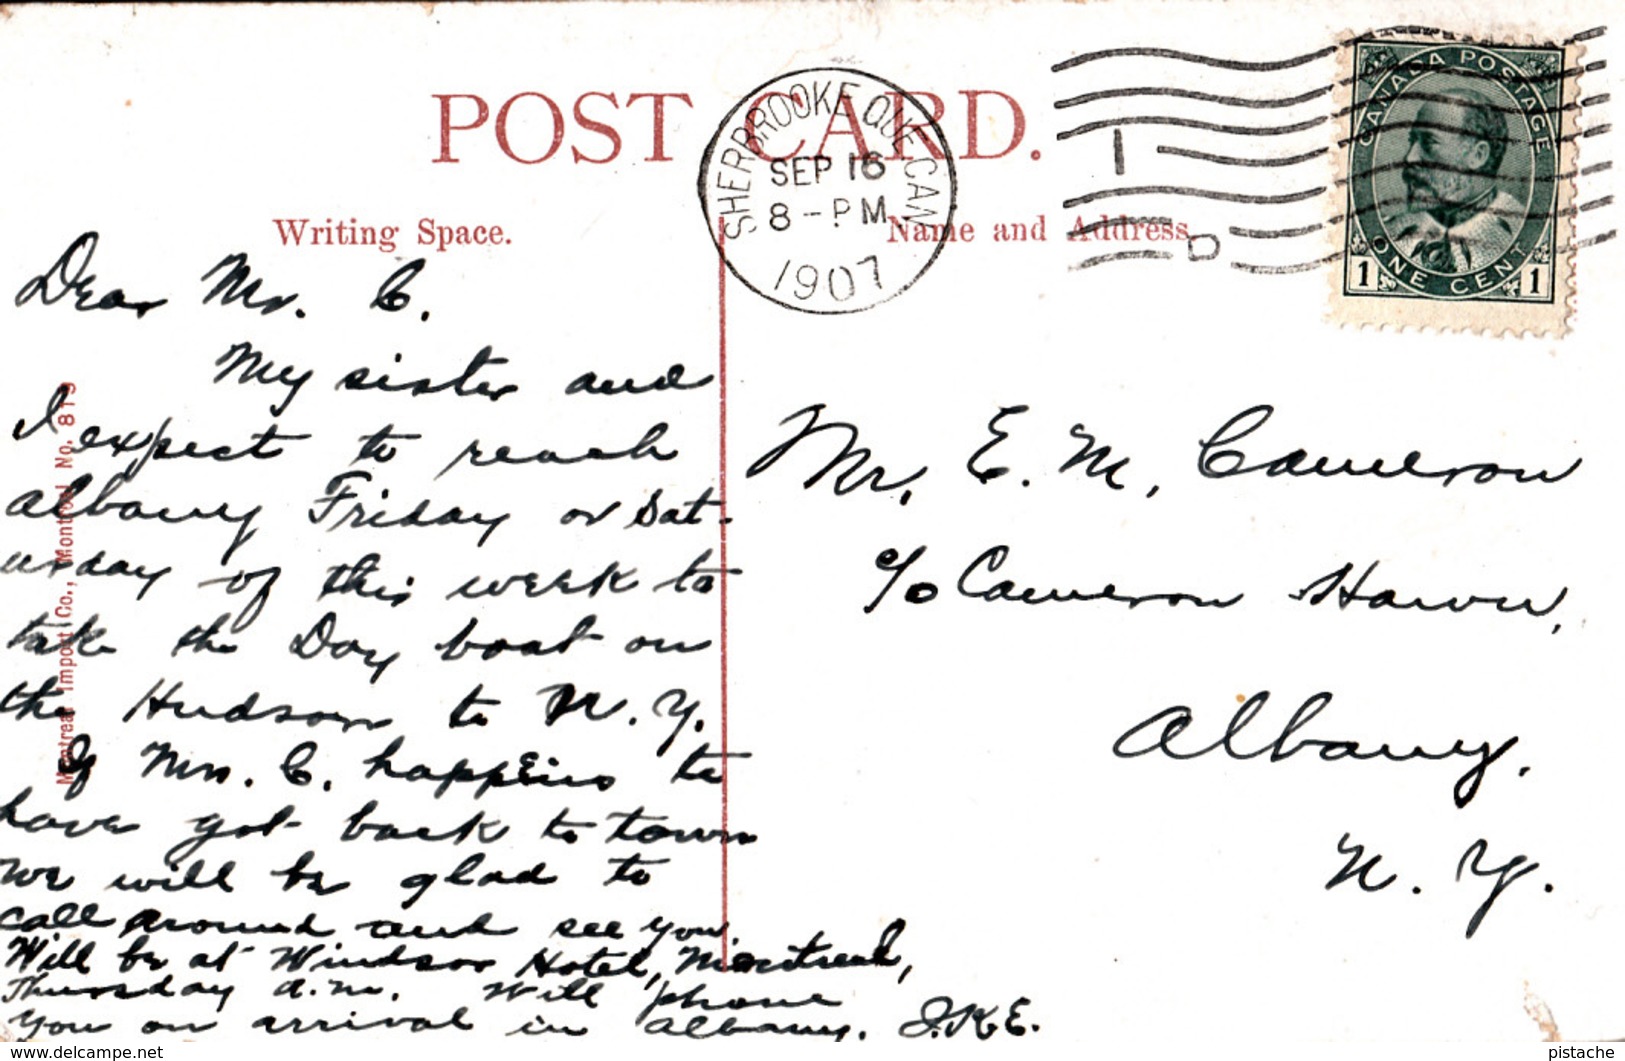 POST CARD.
SHERBROOKE QUE. CAN
SEP 16
8 - PM
1907
1
D
CANADA POSTAGE
ONE CENT
1 1
Writing Space.
Name and Address.
Dear Mr. C.
My sister and
I expect to reach
Albany Friday or Sat-
urday of this week to
take the Day boat on
the Hudson to N. Y.
If Mrs. C. happens to
have got back to town
we will be glad to
call around and see you.
Will be at Windsor Hotel, Montreal,
Thursday a.m. Will 'phone
you on arrival in Albany. J.K.E.
Mr. E. M. Cameron
c/o Cameron Hawn,
Albany.
N. Y.
Montreal Import Co., Montreal No. 819
www.delcampe.net
pistache